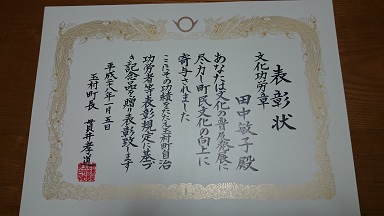 表彰状
文化功労章
田中敏子殿
あなたは文化の普及発展に
尽力し町民文化の向上に
寄与されました
ここにその功績をたたえ玉村町自治
功労者等表彰規定に基づ
き記念品を贈り表彰致します
平成二十八年一月五日
玉村町長 貫井孝道